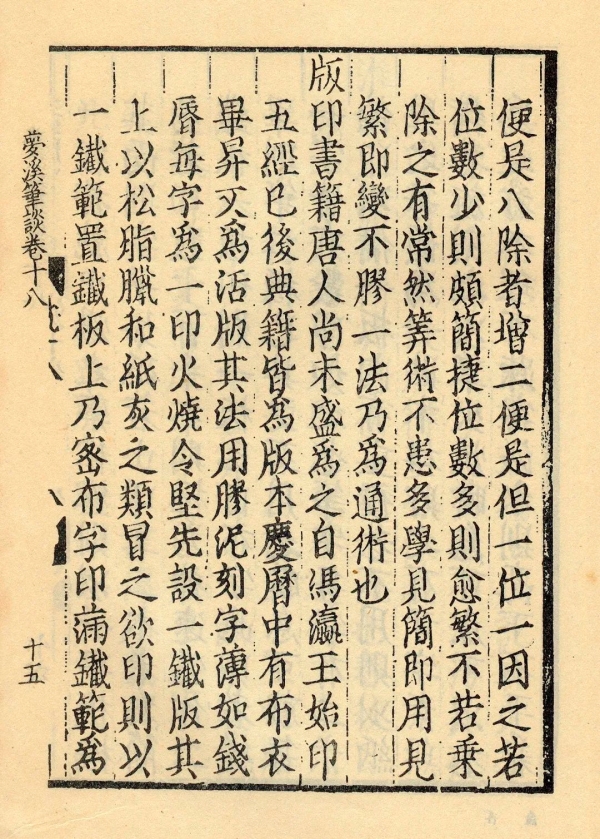 便是八除者增二便是但一位一因之若
位數少則頗簡捷位數多則愈繁不若乗
除之有常然筭術不患多學見簡即用見
繁即變不膠一法乃爲通術也
版印書籍唐人尚未盛爲之自馮瀛王始印
五經已後典籍皆爲版本慶曆中有布衣
畢昇又爲活版其法用膠泥刻字薄如錢
脣每字爲一印火燒令堅先設一鐵版其
上以松脂臘和紙灰之類冒之欲印則以
一鐵範置鐵板上乃密布字印滿鐵範爲
夢溪筆談卷十八
十五